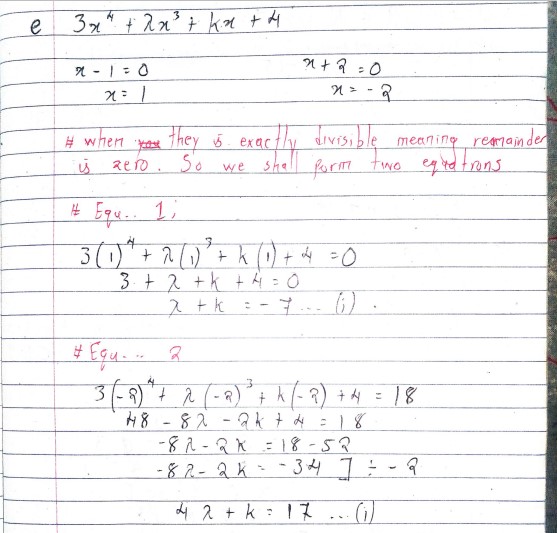 e 3x⁴ + λx³ + kx + 4
x - 1 = 0 x + 2 = 0
x = 1 x = - 2
# when they is exactly divisible meaning remainder
is zero. So we shall form two equations
# Equ.. 1;
3(1)⁴ + λ(1)³ + k(1) + 4 = 0
3 + λ + k + 4 = 0
λ + k = - 7 ... (i) .
# Equ... 2
3(-2)⁴ + λ(-2)³ + k(-2) + 4 = 18
48 - 8λ - 2k + 4 = 18
-8λ - 2k = 18 - 52
-8λ - 2k = -34 ] ÷ - 2
4λ + k = 17 ... (i)